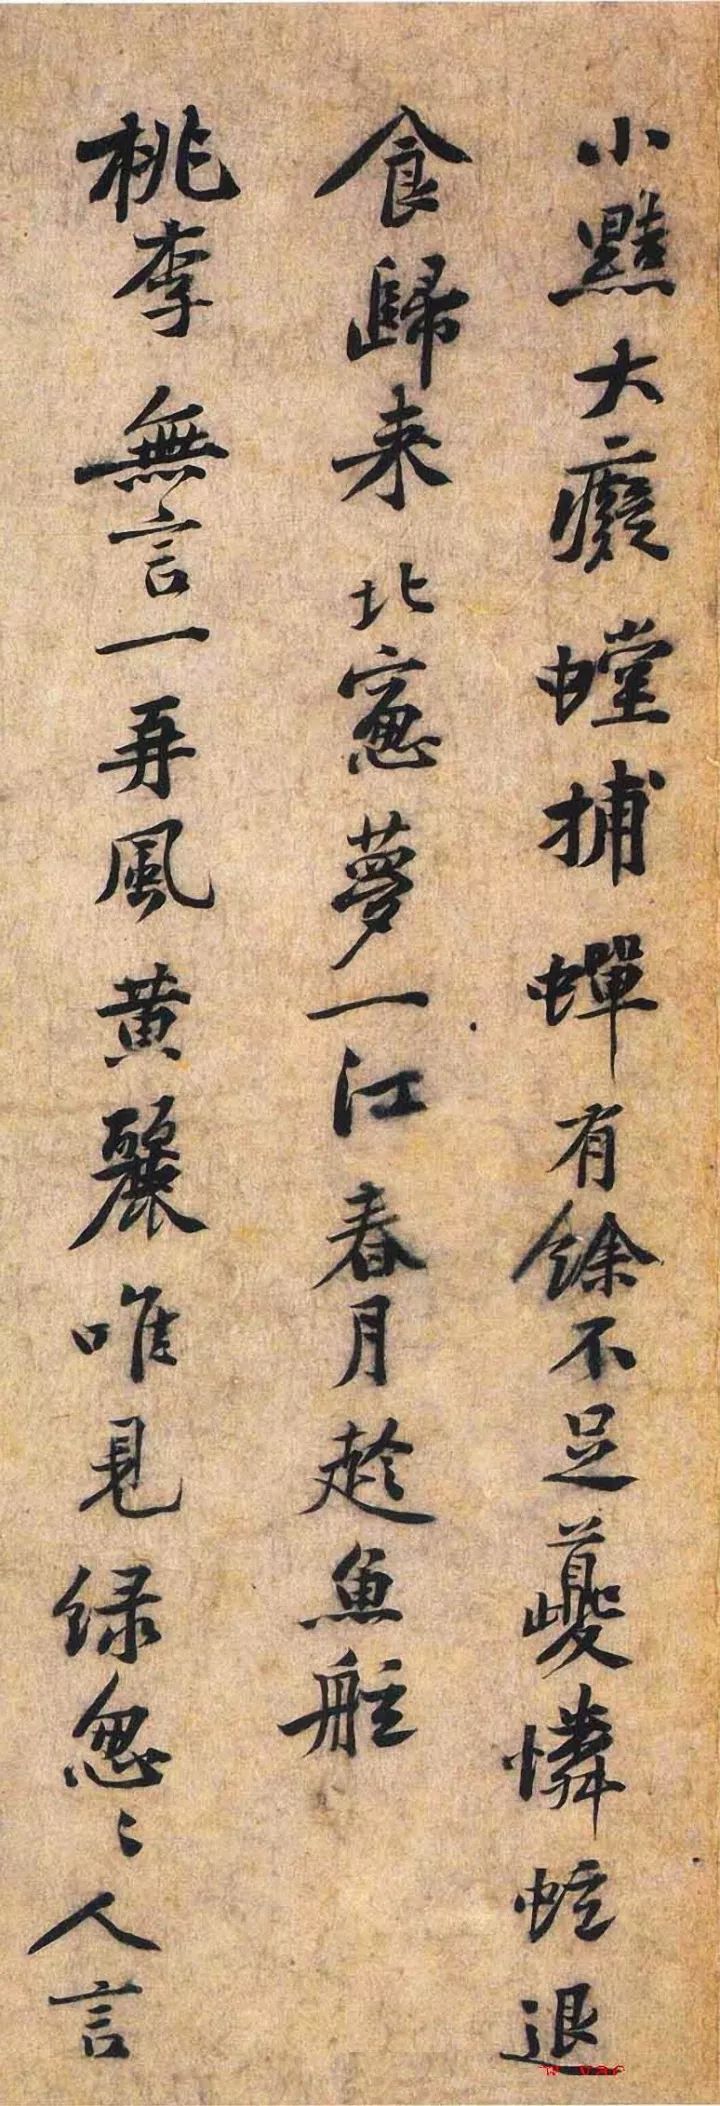 小黠大癡螳捕蟬有餘不足夔憐蚿退
食歸来北窻夢一江春月趁魚舩
桃李無言一再風黄麗唯見緑怱〻人言